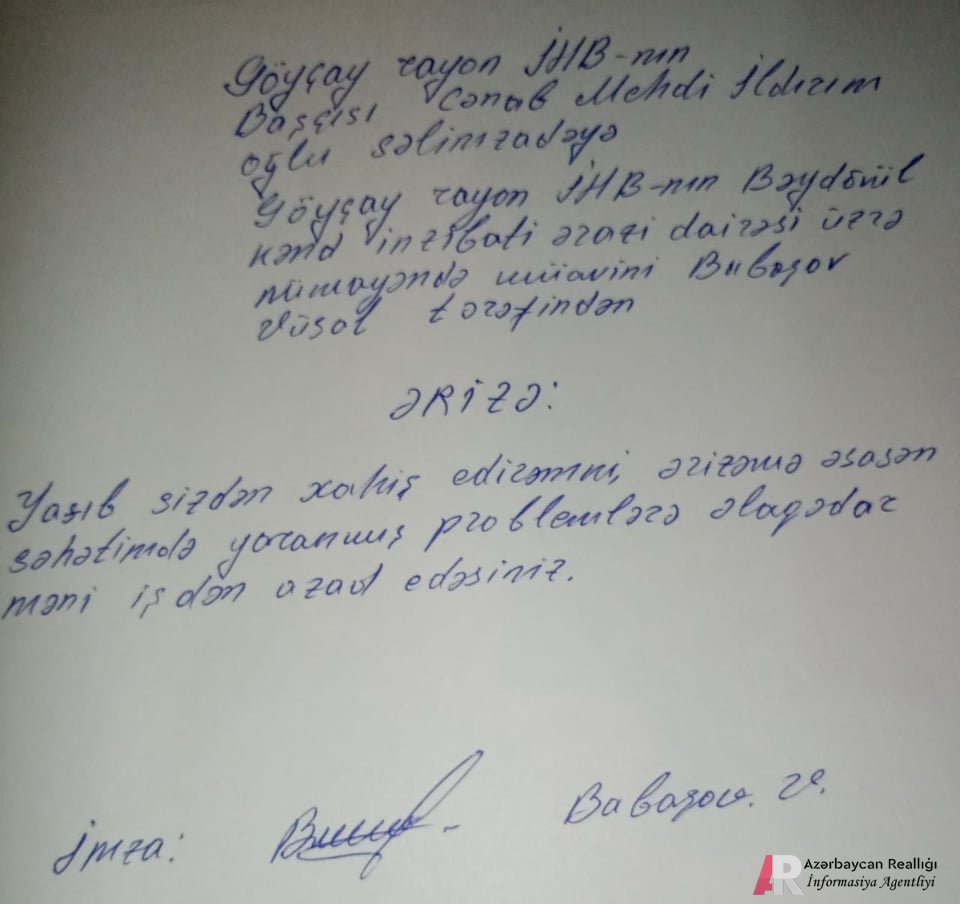 Göyçay rayon İHB-nın
Başçısı Cənab Mehdi İldırım
oğlu səlimzadəyə
Göyçay rayon İHB-nın Bəydövül
kənd inzibati ərazi dairəsi üzrə
nümayəndə müavini Babaşov
Vüsal tərəfindən
ƏRİZƏ:
Yazıb sizdən xahiş edirəmni, ərizəmə əsasən
səhətimdə yaranmış problemlərə əlaqədar
məni işdən azad edəsiniz.
İmza: Babaşov. V.
Azərbaycan Reallığı
İnformasiya Agentliyi